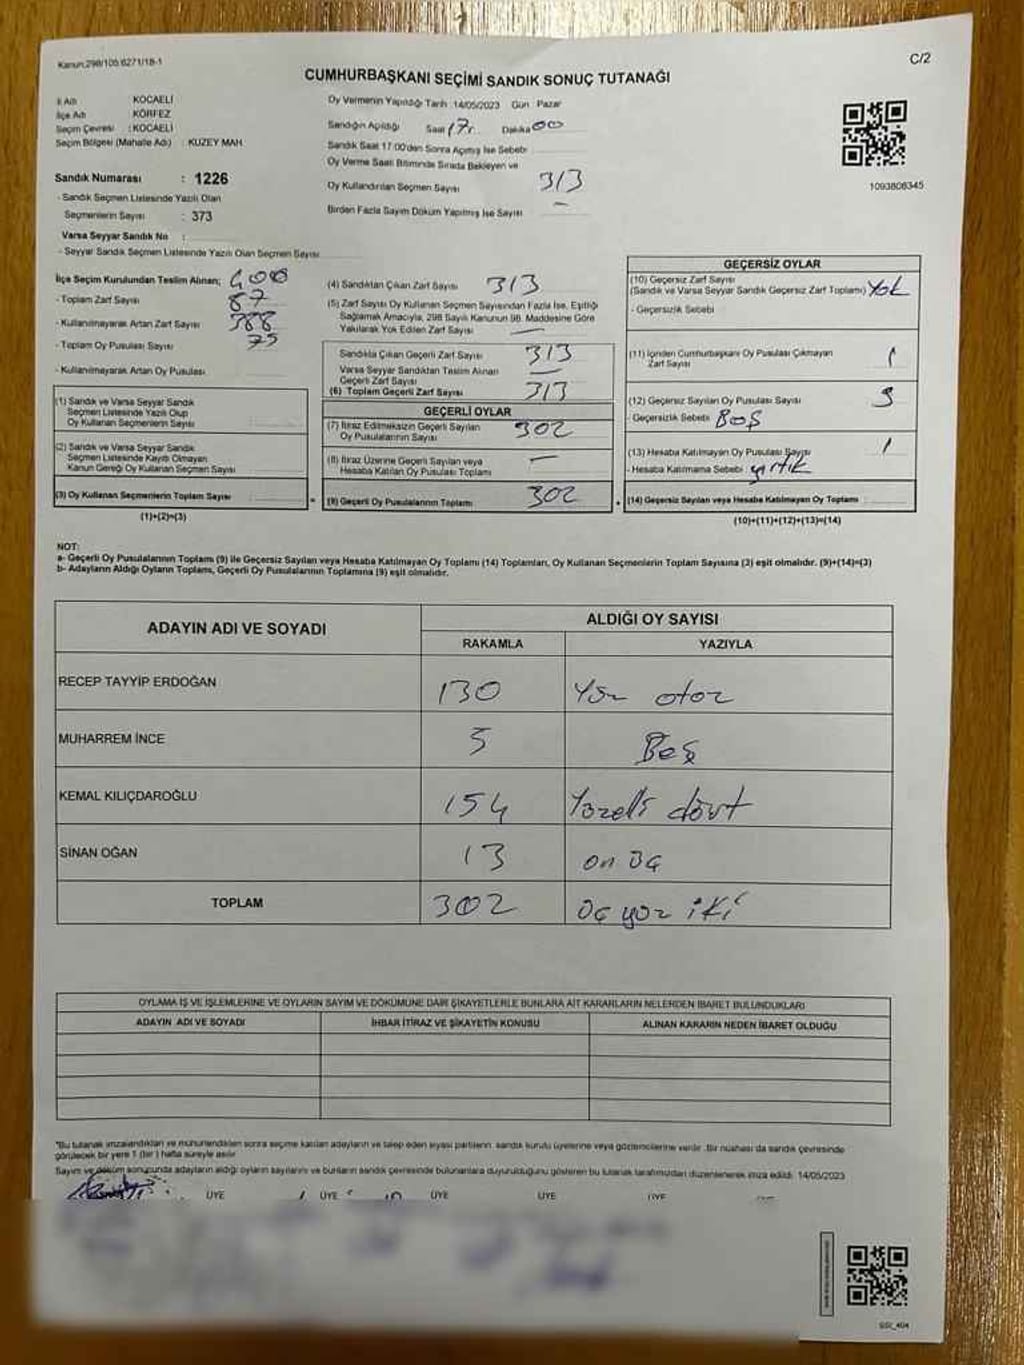 Kanun:298/105 6271/18-1
C/2
CUMHURBAŞKANI SEÇİMİ SANDIK SONUÇ TUTANAĞI
İl Adı KOCAELİ
İlçe Adı KÖRFEZ
Seçim Çevresi : KOCAELİ
Seçim Bölgesi (Mahalle Adı) : KUZEY MAH
Sandık Numarası : 1226
- Sandık Seçmen Listesinde Yazılı Olan
Seçmenlerin Sayısı : 373
Varsa Seyyar Sandık No :
- Seyyar Sandık Seçmen Listesinde Yazılı Olan Seçmen Sayısı
Oy Vermenin Yapıldığı Tarih :14/05/2023 Gün: Pazar
Sandığın Açıldığı Saat 17 Dakika 00
Sandık Saat 17:00'den Sonra Açılmış İse Sebebi
Oy Verme Saati Bitiminde Sırada Bekleyen ve
Oy Kullandırılan Seçmen Sayısı 313
Birden Fazla Sayım Döküm Yapılmış İse Sayısı –
1093808345
İlçe Seçim Kurulundan Teslim Alınan; 400
- Toplam Zarf Sayısı 87
- Kullanılmayarak Artan Zarf Sayısı 388
- Toplam Oy Pusulası Sayısı 75
- Kullanılmayarak Artan Oy Pusulası
(1) Sandık ve Varsa Seyyar Sandık
Seçmen Listesinde Yazılı Olup
Oy Kullanan Seçmenlerin Sayısı
(2) Sandık ve Varsa Seyyar Sandık
Seçmen Listesinde Kayıtlı Olmayan
Kanun Gereği Oy Kullanan Seçmen Sayısı
(3) Oy Kullanan Seçmenlerin Toplam Sayısı
(1)+(2)=(3)
(4) Sandıktan Çıkan Zarf Sayısı 313
(5) Zarf Sayısı Oy Kullanan Seçmen Sayısından Fazla İse, Eşitliği
Sağlamak Amacıyla, 298 Sayılı Kanunun 98. Maddesine Göre
Yakılarak Yok Edilen Zarf Sayısı –
Sandıkta Çıkan Geçerli Zarf Sayısı 313
Varsa Seyyar Sandıktan Teslim Alınan
Geçerli Zarf Sayısı –
(6) Toplam Geçerli Zarf Sayısı 313
GEÇERLİ OYLAR
(7) İtiraz Edilmeksizin Geçerli Sayılan
Oy Pusulalarının Sayısı 302
(8) İtiraz Üzerine Geçerli Sayılan veya
Hesaba Katılan Oy Pusulası Toplamı –
(9) Geçerli Oy Pusulalarının Toplamı 302
GEÇERSİZ OYLAR
(10) Geçersiz Zarf Sayısı
(Sandık ve Varsa Seyyar Sandık Geçersiz Zarf Toplamı) Yok
- Geçersizlik Sebebi
(11) İçinden Cumhurbaşkanı Oy Pusulası Çıkmayan
Zarf Sayısı 1
(12) Geçersiz Sayılan Oy Pusulası Sayısı 9
- Geçersizlik Sebebi BOŞ
(13) Hesaba Katılmayan Oy Pusulası Sayısı 1
- Hesaba Katılmama Sebebi yırtık
(14) Geçersiz Sayılan veya Hesaba Katılmayan Oy Toplamı
(10)+(11)+(12)+(13)=(14)
NOT:
a- Geçerli Oy Pusulalarının Toplamı (9) ile Geçersiz Sayılan veya Hesaba Katılmayan Oy Toplamı (14) Toplamları, Oy Kullanan Seçmenlerin Toplam Sayısına (3) eşit olmalıdır. (9)+(14)=(3)
b- Adayların Aldığı Oyların Toplamı, Geçerli Oy Pusulalarının Toplamına (9) eşit olmalıdır.
ADAYIN ADI VE SOYADI
ALDIĞI OY SAYISI
RAKAMLA YAZIYLA
RECEP TAYYİP ERDOĞAN 130 Yüz otuz
MUHARREM İNCE 5 Beş
KEMAL KILIÇDAROĞLU 154 Yüzelli dört
SİNAN OĞAN 13 on üç
TOPLAM 302 üç yüz iki
OYLAMA İŞ VE İŞLEMLERİNE VE OYLARIN SAYIM VE DÖKÜMÜNE DAİR ŞİKAYETLERLE BUNLARA AİT KARARLARIN NELERDEN İBARET BULUNDUKLARI
ADAYIN ADI VE SOYADI İHBAR İTİRAZ VE ŞİKAYETİN KONUSU ALINAN KARARIN NEDEN İBARET OLDUĞU
*Bu tutanak imzalandıktan ve mühürlendikten sonra seçime katılan adayların ve talep eden siyasi partilerin sandık kurulu üyelerine veya gözlemcilerine verilir. Bir nüshası da sandık çevresinde
görülecek bir yere 1 (bir) hafta süreyle asılır.
Sayım ve döküm sonucunda adayların aldığı oyların sayılarını ve bunların sandık çevresinde bulunanlara duyurulduğunu gösteren bu tutanak tarafımızdan düzenlenerek imza edildi. 14/05/2023
ÜYE ÜYE ÜYE ÜYE ÜYE